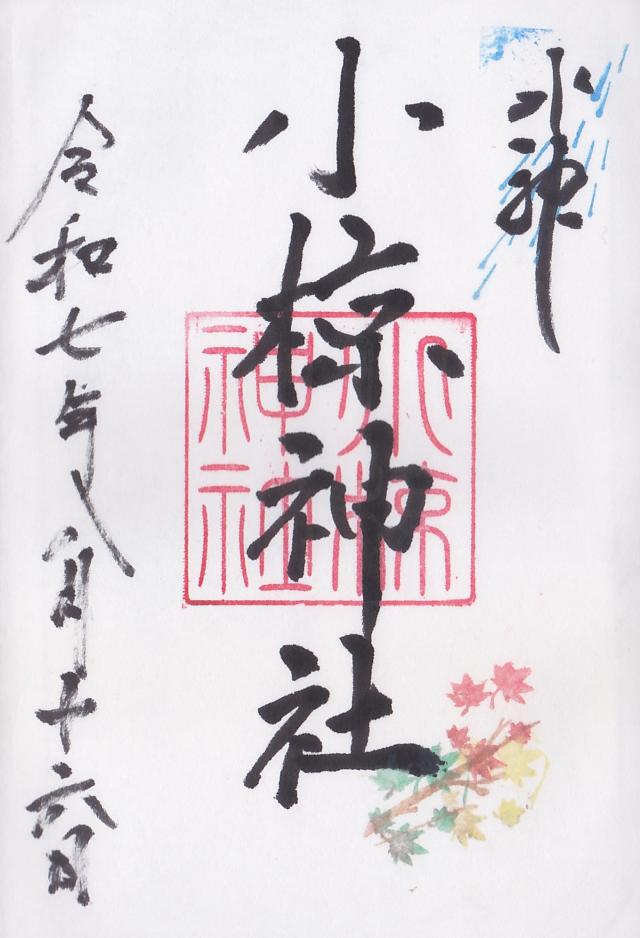 水神
小椋神社
小椋
神社
令和七年八月十六日